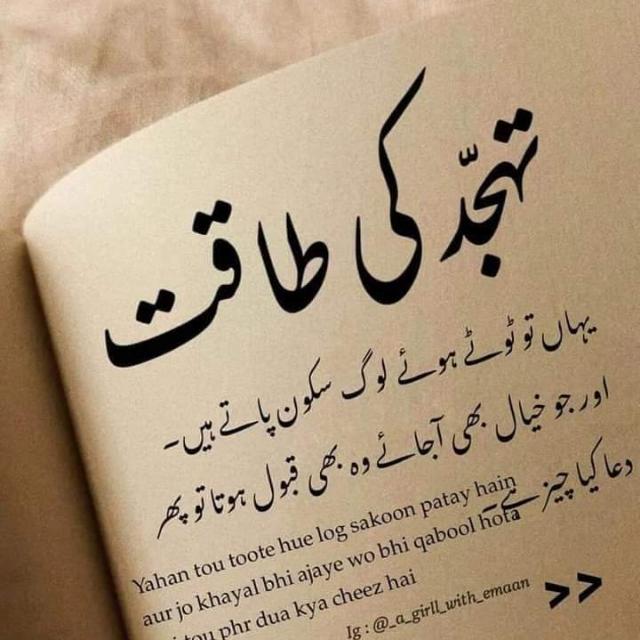 تہجّد کی طاقت
یہاں تو ٹوٹے ہوئے لوگ سکون پاتے ہیں۔
اور جو خیال بھی آجائے وہ بھی قبول ہوتا تو پھر
دعا کیا چیز ہے۔
Yahan tou toote hue log sakoon patay hain
aur jo khayal bhi ajaye wo bhi qabool hota
tou phr dua kya cheez hai
Ig : @_a_girll_with_emaan
>>